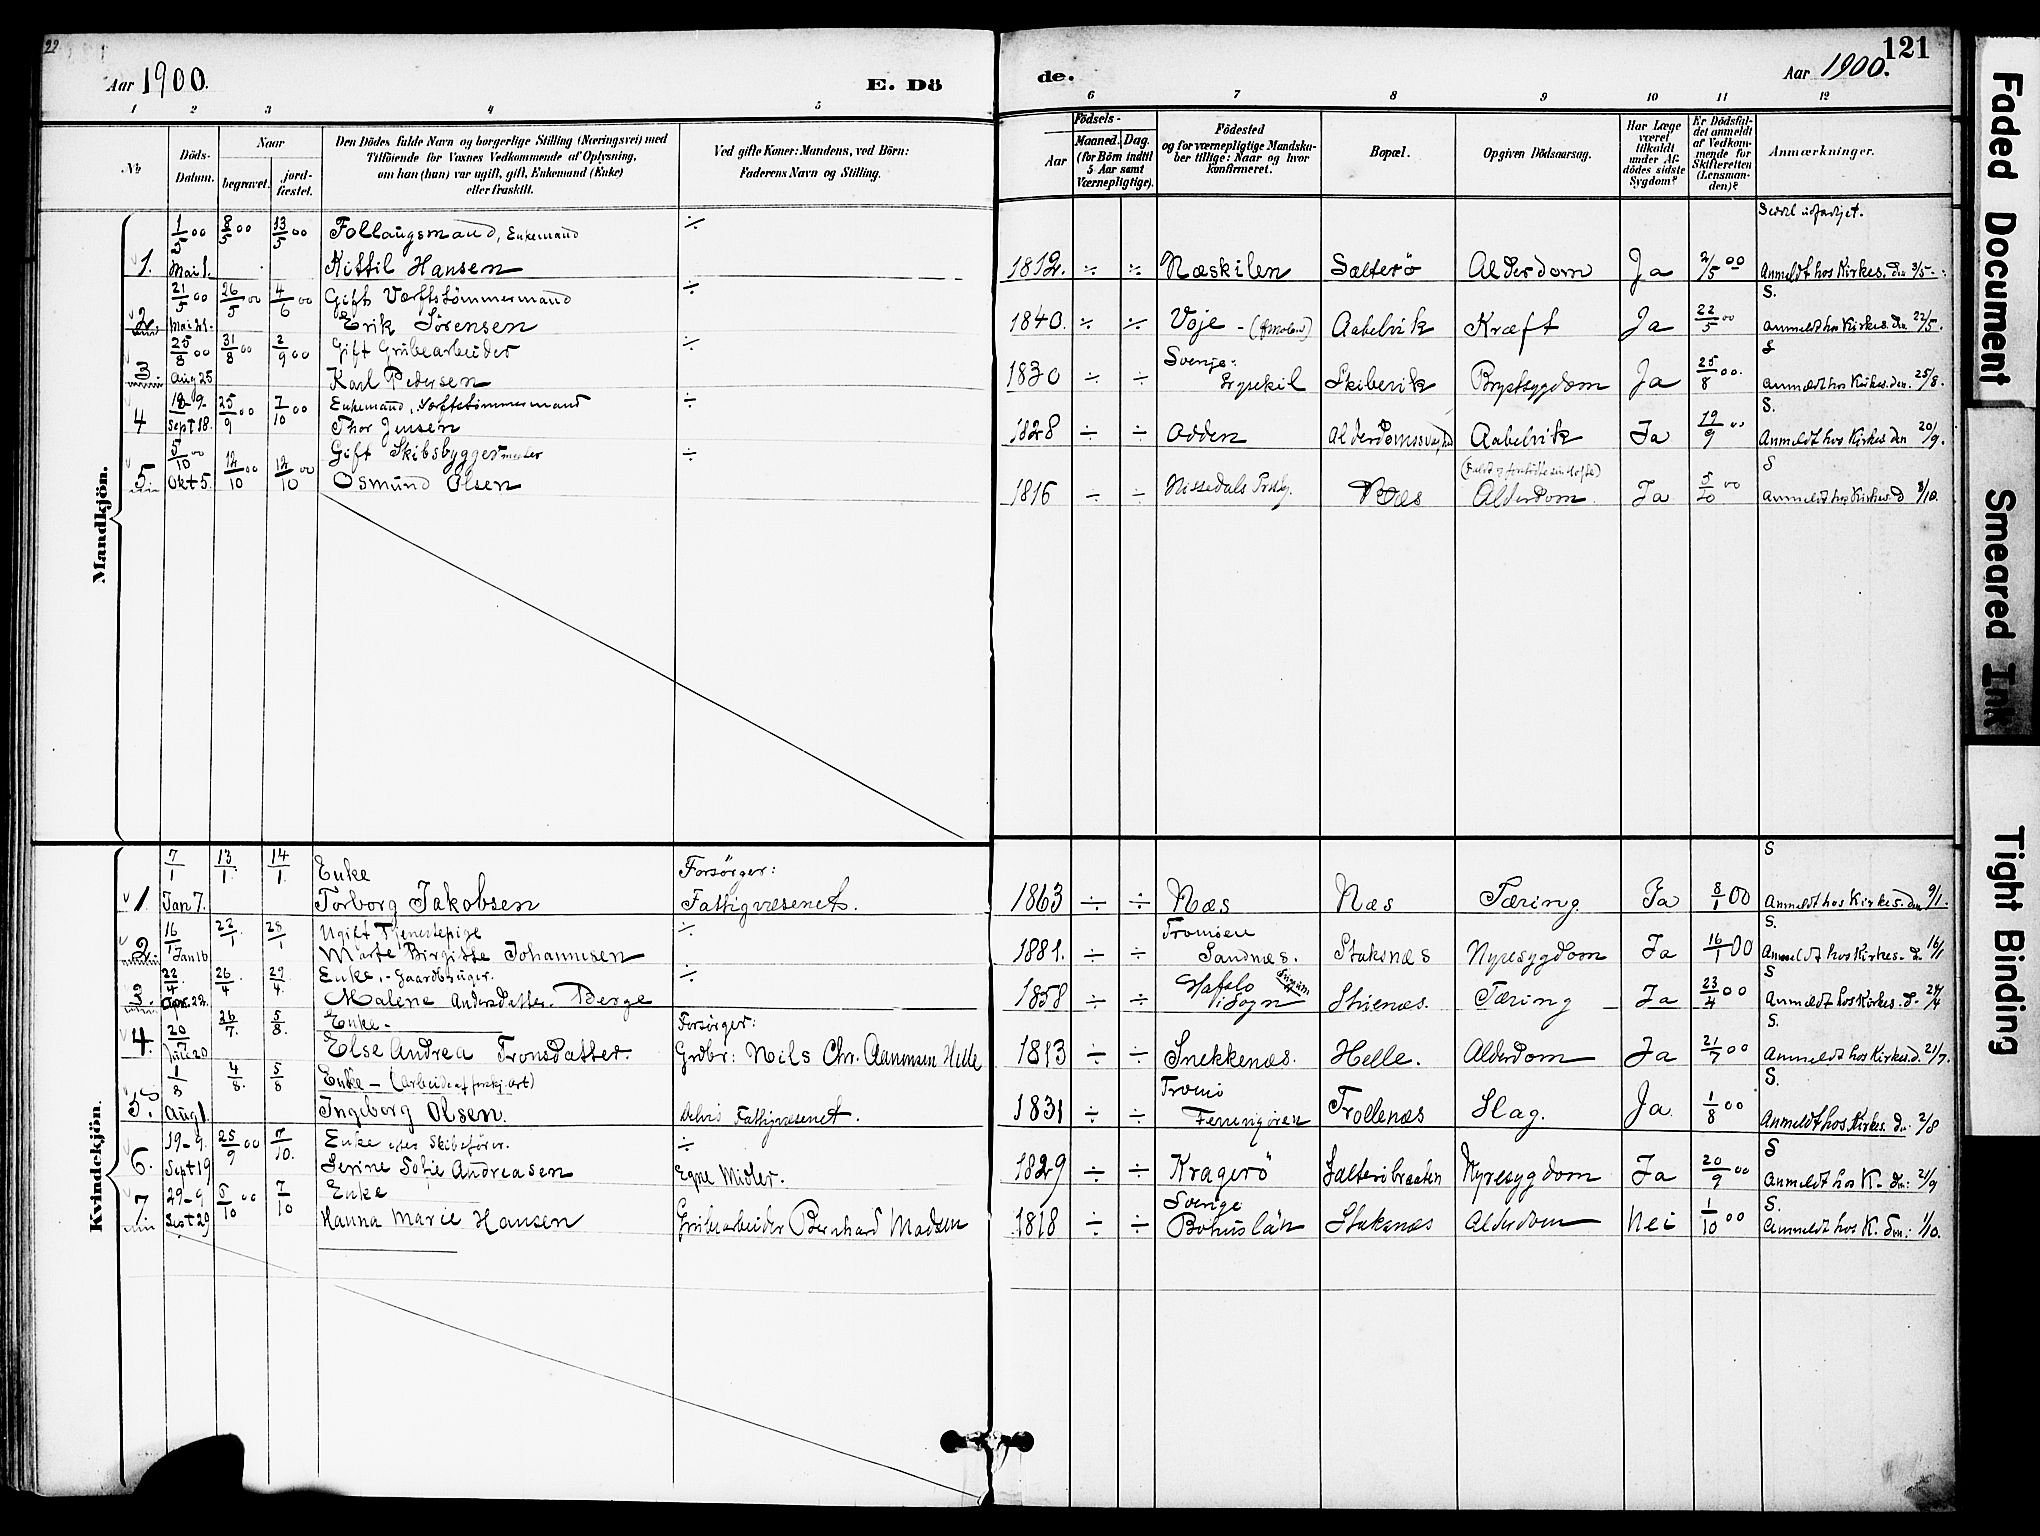 22
Aar 1900.
E. Dö
de.
Aar 1900.
121
1 2 3 4 5 6 7 8 9 10 11 12
No
Döds-Datum.
Naar
begravet.
jord-fæstet.
Den Dödes fulde Navn og borgerlige Stilling (Næringsvei) med
Tilföiende for Voxnes Vedkommende af Oplysning,
om han (hun) var ugift, gift, Enkemand (Enke)
eller fraskilt.
Ved gifte Koner: Mandens, ved Börn:
Faderens Navn og Stilling.
Födsels-
Aar
Maaned. Dag.
(for Börn indtil
5 Aar samt
Værnepligtige).
Födested
og for værnepligtige Mandska-
ber tillige: Naar og hvor
konfirmeret.
Bopæl.
Opgiven Dödsaarsag.
Har Læge
været
tilkaldt
under Af-
dödes sidste
Sygdom?
Er Dödsfal-
det anmeldt
af Vedkom-
mende for
Skifteretten
(Lensman-
den)?
Anmærkninger.
Mandkjön.
1/5 00 8/5 00 13/5 00 Follaugsmand, Enkemand ÷
1. Mai 1. Kittil Hansen 1812. ÷ ÷ Næskilen Salterö Alderdom Ja 2/5 00 Anmeldt hos Kirkes. den 3/5
21/5 00 26/5 00 4/6 00 Gift Værftstömmermand ÷ S.
2. Mai 21. Erik Sörensen 1840. ÷ ÷ Voje Aabelvik Kræft Ja 22/5 00 Anmeldt hos Kirkes. den 22/5.
25/8 00 31/8 00 2/9 00 Gift Grubearbeider ÷ S
3 Aug 25 Karl Pedersen 1830 ÷ ÷ Sverige: Lysekil Skibevik Brystsygdom Ja 25/8 00. Anmeldt hos Kirkes. den. 25/8.
18-9- 25/9 00 7/10 00 Enkemand, Værftstömmermand ÷ S.
4 Sept 18. Thor Jensen 1828 ÷ ÷ Odden Aabelvik Ja 19/9 00 Anmeldt hos Kirkes den 20/9.
5/10 00 12/10 00 12/10 00 Gift Skibsbyggermester ÷ S
5. Okt 5. Osmund Olsen 1816 ÷ ÷ Nissedals Næs Alderdom. Ja 5/10 00 Anmeldt hos Kirkes. d 8/10.
Kvindekjön.
7/1 13/1. 14/1. Enke Forsörger: S
1. Jan 7. Torborg Jakobsen Fattigvæsenet. 1863 ÷ ÷ Næs Næs Tæring. Ja 8/1 00 Anmeldt hos Kirkes. den 9/1.
16/1 22/1. 25/1 Ugift Tjenestepige ÷ Tromöen S.
2 Jan 16 Marte Birgitte Johannesen 1881. ÷ ÷ Sandnæs. Staksnæs Nyresygdom Ja 16/1 00 Anmeldt hos Kirkes. d. 16/1
22/4 26/4 29/4. Enke,- Gaardbruger. ÷ S
3. Apr. 22. Malene Andersdatter Berge 1858 ÷ ÷ Hafslo i Sogn Stienæs. Tæring Ja 23/4 00 Anmeldt hos Kirkes. d. 24/4
20/7 26/7. 5/8. Enke- Forsörger: S.
4. Juli 20 Else Andrea Tronsdatter. Grdbr: Nils Chr. Aanonsen Helle 1813 ÷ ÷ Snekkenæs. Helle. Alderdom Ja 21/7 00 Anmeldt hos Kirkes. d. 21/7.
1/8 4/8. 5/8 Enke - (Arbeide af forskj. Art) Tromö S.
5. Aug 1. Ingeborg Olsen. delvis Fattigvæsenet. 1831 ÷ ÷ Trollenæs Slag. Ja 1/8 00 Anmeldt hos Kirkes. den 2/8
19-9. 25/9 00 7/10. Enke efter Skibsförer. ÷ S
6. Sept 19 Serine Sofie Andreasen Egne Midler. 1829 ÷ ÷ Kragerö Salteröbraaten Nyresygdom Ja 20/9 00 Anmeldt hos K. den: 21/9
29-9 5/10 00 7/10 Enke Sverige S.
7 Sept 29 Hanna Marie Hansen Grubearbeider Bernhard Madsen 1818 ÷ ÷ Bohuslän Staksnæs Alderdom Nei 1/10 00 Anmeldt hos K. den: 1/10.
Faded Document
Smeared Ink
Tight Binding